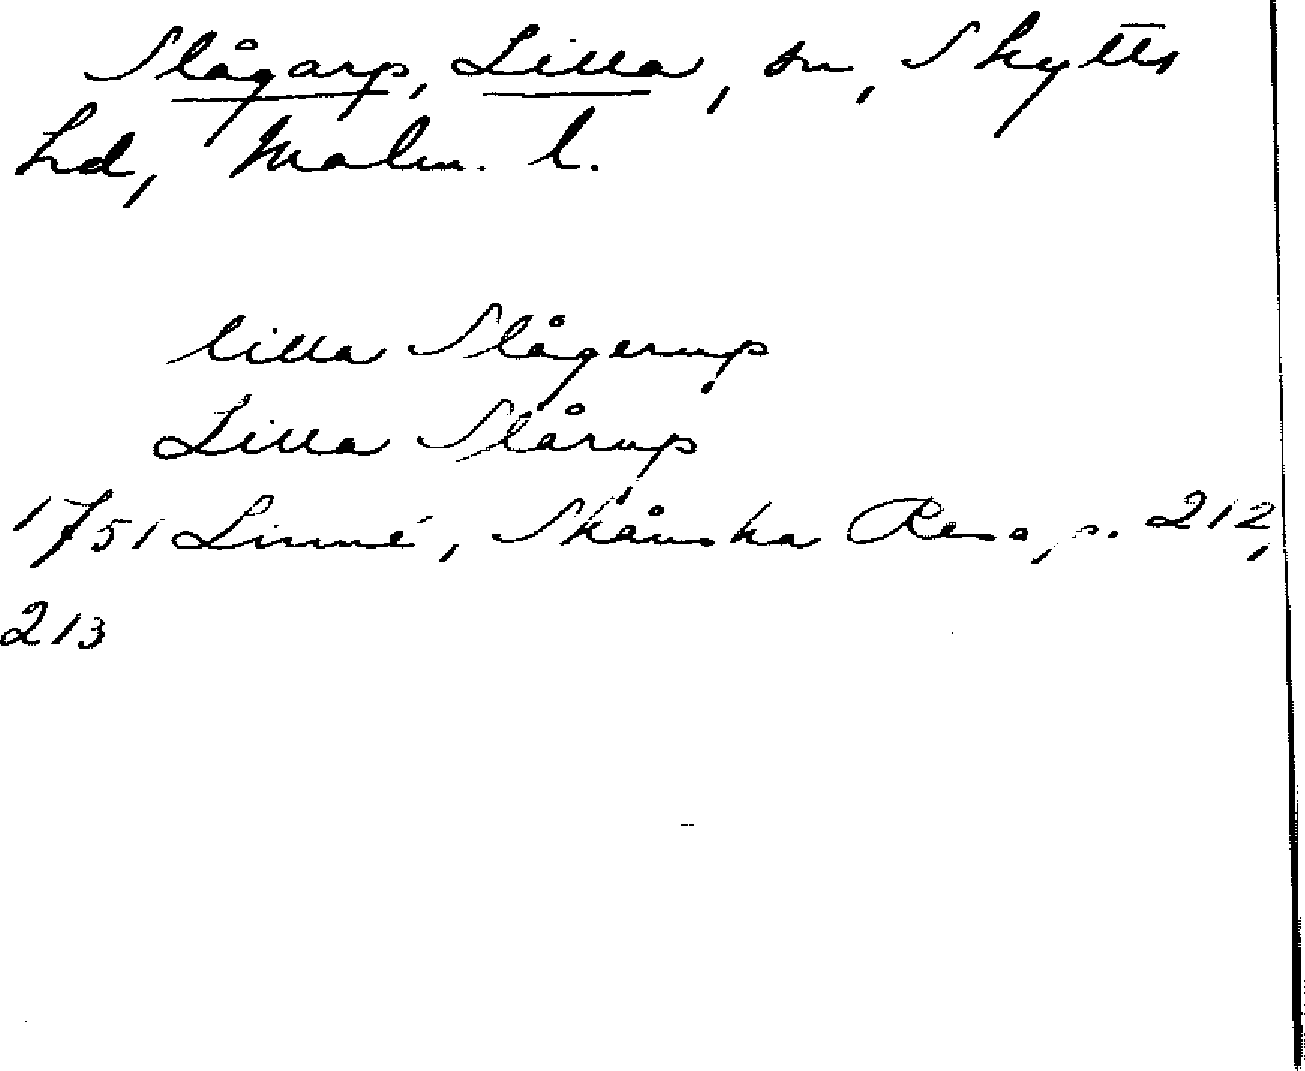 Slågarp, Lilla, sn, Skytts
hd, Malm. l.
lilla Slågerup
Lilla Slårup
1751 Linné, Skånska Resa, p. 212,
213